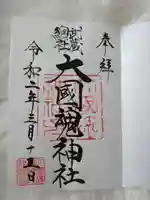 奉拝
武蔵總社
大國魂神社
令和二年三月十五日